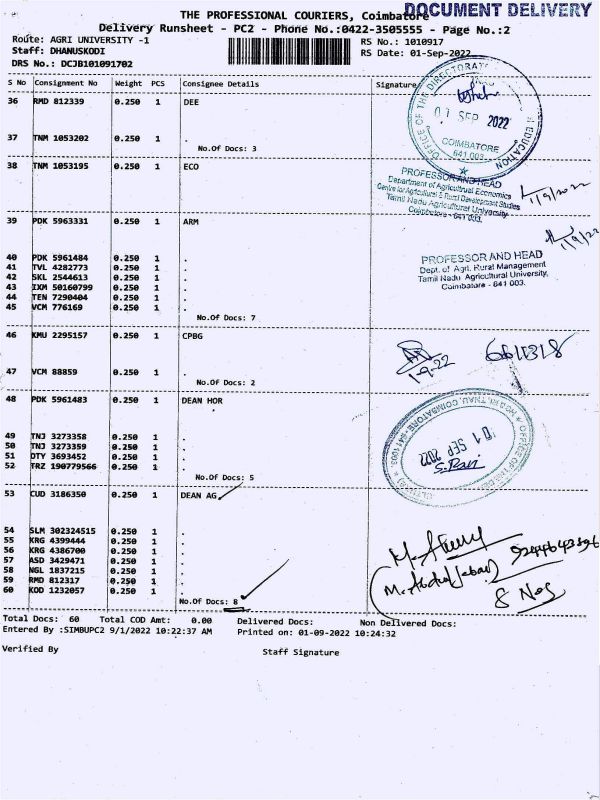 DOCUMENT DELIVERY
THE PROFESSIONAL COURIERS, Coimbatore
Delivery Runsheet - PC2 - Phone No.:0422-3505555 - Page No.:2
Route: AGRI UNIVERSITY -1 RS No.: 1010917
Staff: DHANUSKODI RS Date: 01-Sep-2022
DRS No.: DCJB101091702
S No Consignment No Weight PCS Consignee Details Signature
36 RMD 812339 0.250 1 DEE
37 TNM 1053202 0.250 1 .
No.Of Docs: 3
38 TNM 1053195 0.250 1 ECO
39 PDK 5963331 0.250 1 ARM
40 PDK 5961484 0.250 1 .
41 TVL 4282773 0.250 1 .
42 SKL 2544613 0.250 1 .
43 IXM 50160799 0.250 1 .
44 TEN 7290404 0.250 1 .
45 VCM 776169 0.250 1 .
No.Of Docs: 7
46 KMU 2295157 0.250 1 CPBG
47 VCM 88859 0.250 1 .
No.Of Docs: 2
48 PDK 5961483 0.250 1 DEAN HOR
49 TNJ 3273358 0.250 1 .
50 TNJ 3273359 0.250 1 .
51 OTY 3693452 0.250 1 .
52 TRZ 190779566 0.250 1 .
No.Of Docs: 5
53 CUD 3186350 0.250 1 DEAN AG
54 SLM 302324515 0.250 1 .
55 KRG 4399444 0.250 1 .
56 KRG 4386700 0.250 1 .
57 ASD 3429471 0.250 1 .
58 NGL 1837215 0.250 1 .
59 RMD 812317 0.250 1 .
60 KOD 1232057 0.250 1 .
No.Of Docs: 8
OFFICE OF THE DIRECTORATE
EDUCATION
01 SEP 2022
COIMBATORE
641 003
PROFESSOR AND HEAD
Department of Agricultrual Economics
Centre for Agricultural & Rural Development Studies
Tamil Nadu Agricultural University
Coimbatore - 641 003.
1/9/2022
1/9/22
PROFESSOR AND HEAD
Dept. of Agri. Rural Management
Tamil Nadu Agricultural University,
Coimbatore - 641 003.
1-9-22
6611318
01 SEP 2022
8 Nos
Total Docs: 60 Total COD Amt: 0.00 Delivered Docs: Non Delivered Docs:
Entered By :SIMBUPC2 9/1/2022 10:22:37 AM Printed on: 01-09-2022 10:24:32
Verified By Staff Signature